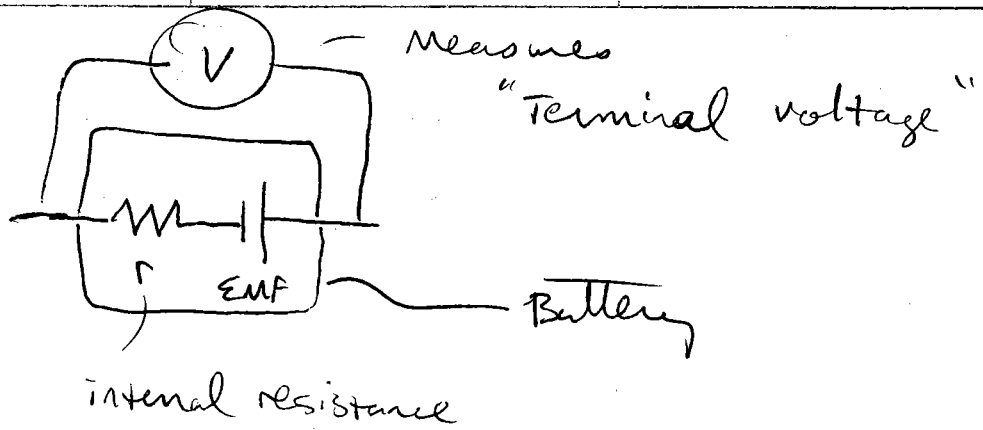 V
Measures
"Terminal voltage"
r
EMF
Battery
internal resistance